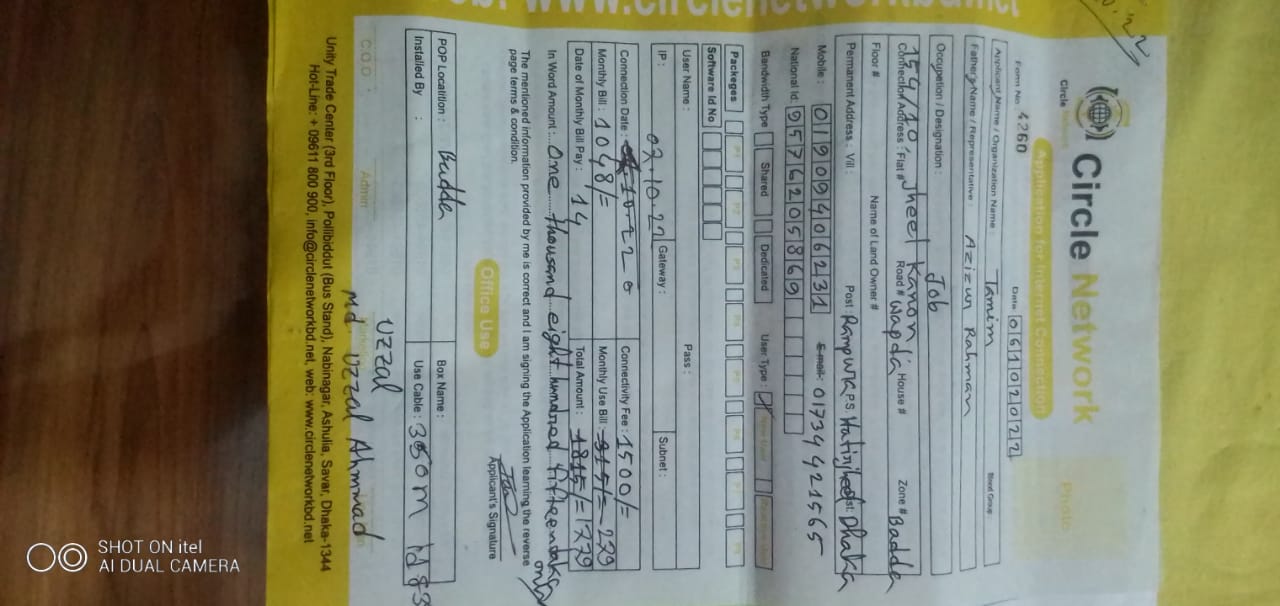 Web: www.circlenetworkbd.net
Circle Network
Circle Network
Application for Internet Connection
Photo
Form No: 4260
Date: 06102022
Applicant Name / Organization Name: Tamim
Blood Group
Father's Name / Representative: Azizur Rahman
Occupation / Designation: Job
154/10 Jheel Kanon, Wapda
Connection Address: Flat # Road # House # Zone # Badda
Floor # Name of Land Owner #
Permanent Address: Vill: Post Rampura P.S. Hatirjheel Dist: Dhaka
Mobile: 01909406231 E-mail: 01739421565
National Id: 9576205869
Bandwidth Type Shared Dedicated User Type:
Packeges P1 P2 P3
Software Id No
User Name: Pass:
IP: Gateway: Subnet:
02.10.22
Connection Date: Connectivity Fee: 1500/=
Monthly Bill: 1048/= Monthly Use Bill: 315/= 279
Date of Monthly Bill Pay: 14 Total Amount: 1815/= 1779
In Word Amount: One thousand eight hundred fifteen taka only
The mentioned information provided by me is correct and I am signing the Application learning the reverse
page terms & condition.
Applicant's Signature
Office Use
POP Locatition: Badda Box Name:
Installed By: Use Cable: 350m
Uzzal
C.O.O Admin
Md. Uzzal Ahmmad
Unity Trade Center (3rd Floor), Pollibiddut (Bus Stand), Nabinagar, Ashulia, Savar, Dhaka-1344
Hot-Line: + 09611 800 900, info@circlenetworkbd.net, web: www.circlenetworkbd.net
SHOT ON itel
AI DUAL CAMERA